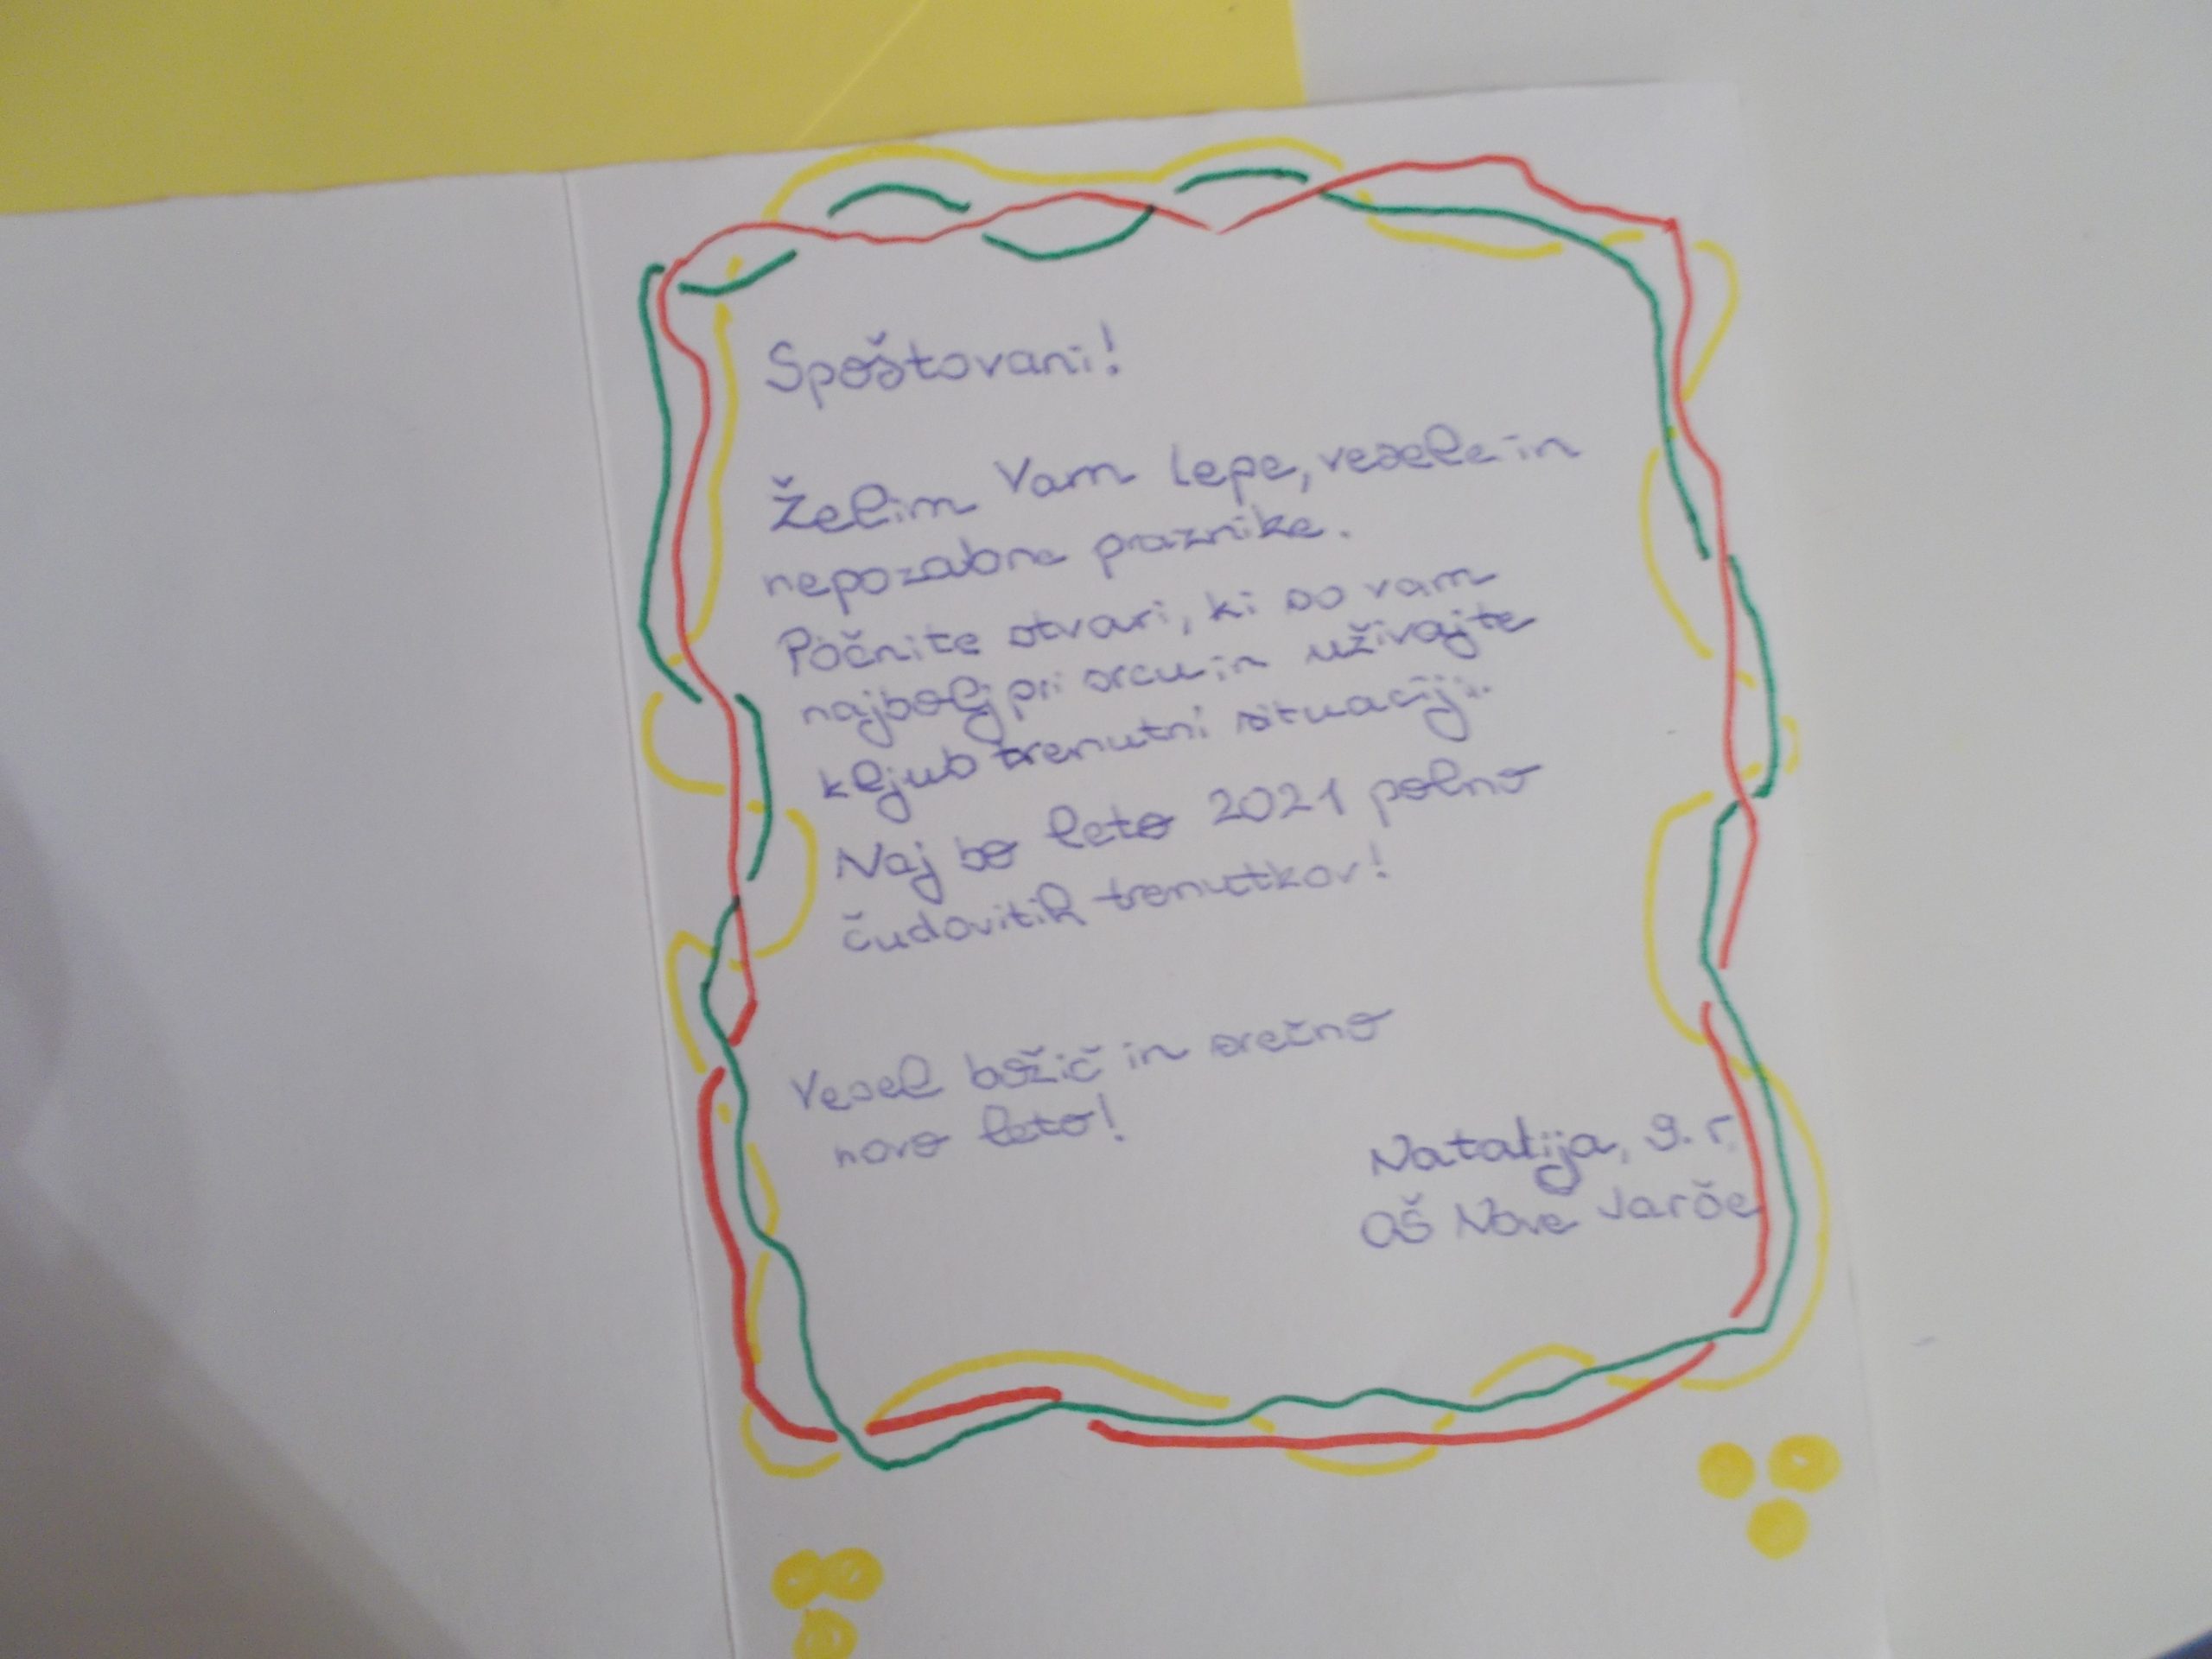 Spoštovani!
Želim Vam lepe, vesele in
nepozabne praznike.
Počnite stvari, ki so vam
najbolj pri srcu in uživajte
kljub trenutni situaciji.
Naj bo leto 2021 polno
čudovitih trenutkov!
Vesel božič in srečno
novo leto!
Natalija, 9. r.
OŠ Nove Jarše